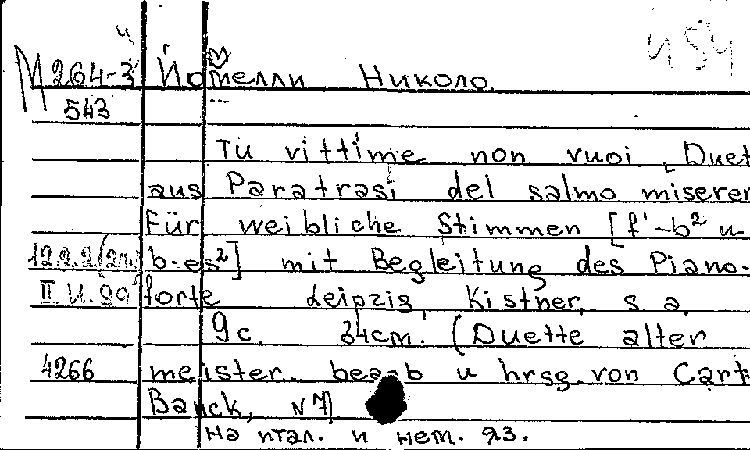 М 264-3 Йомелли Николо.
543
Tu vittime non vuoi, Duet
aus Paratrasi del salmo miserer
Für weibliche Stimmen [f'-b² u
b-es²] mit Begleitung des Piano-
forte Leipzig, Kistner, s a.
9c. 34cm. (Duette alter
4266 meister. bearb u hrsg. von Carl
Banck, N 7)
на итал. и нем. яз.